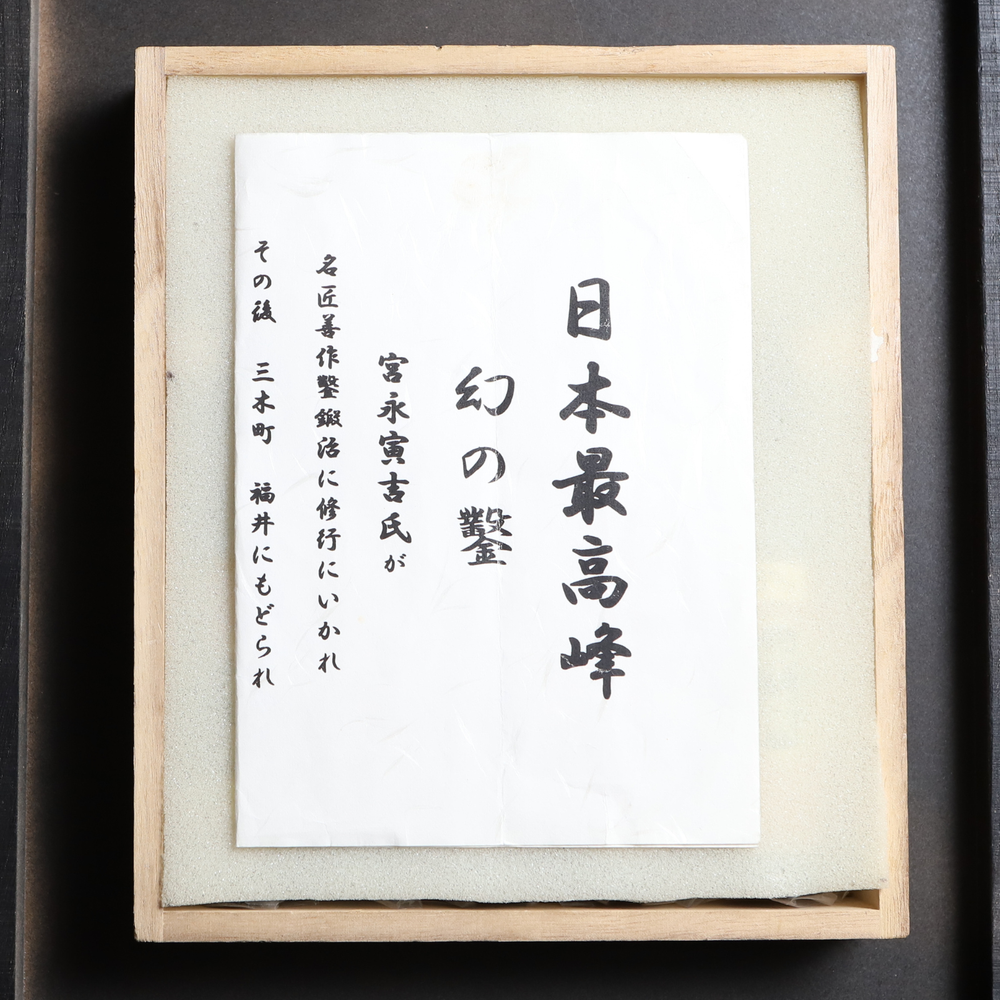 日本最高峰
幻の鑿
宮永寅吉氏が
名匠善作鑿鍛冶に修行にいかれ
その後 三木町 福井にもどられ